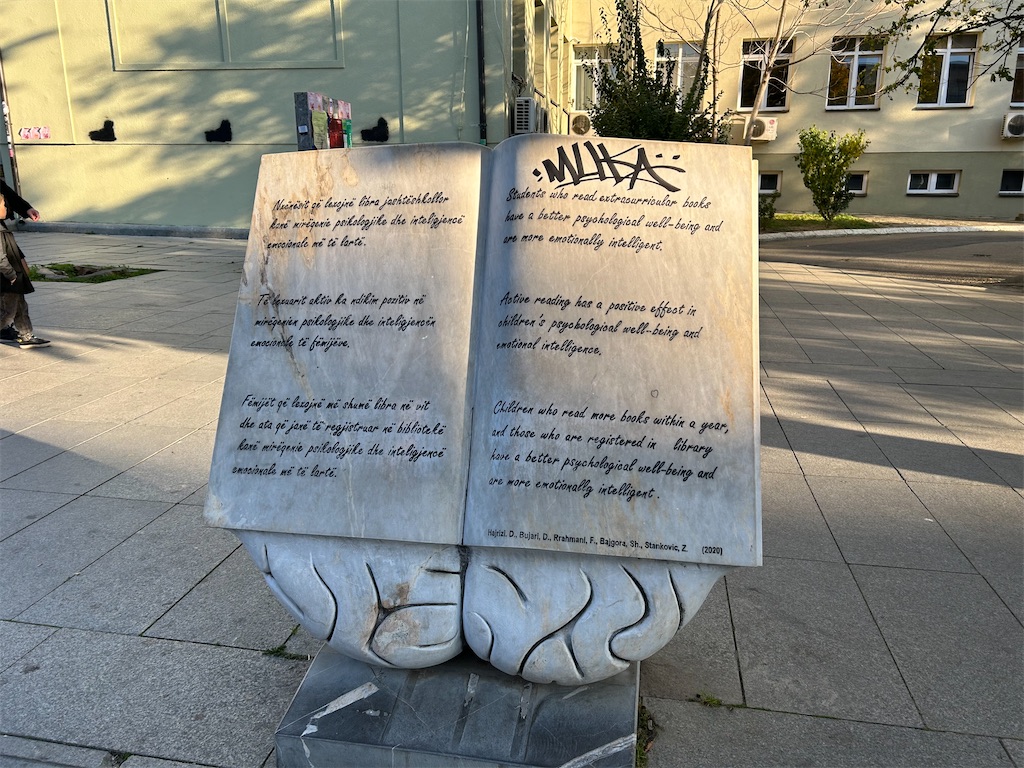 Nxënësit që lexojnë libra jashtëshkollor
kanë mirëqenie psikologjike dhe inteligjencë
emocionale më të lartë.
Të lexuarit aktiv ka ndikim pozitiv në
mirëqenien psikologjike dhe inteligjencën
emocionale të fëmijëve.
Fëmijët që lexojnë më shumë libra në vit
dhe ata që janë të regjistruar në bibliotekë
kanë mirëqenie psikologjike dhe inteligjencë
emocionale më të lartë.
MUKA
Students who read extracurricular books
have a better psychological well-being and
are more emotionally intelligent.
Active reading has a positive effect in
children's psychological well-being and
emotional intelligence.
Children who read more books within a year,
and those who are registered in library
have a better psychological well-being and
are more emotionally intelligent.
Hajrizi, D., Bujari, D., Rrahmani, F., Bajgora, Sh., Stankovic, Z. (2020)